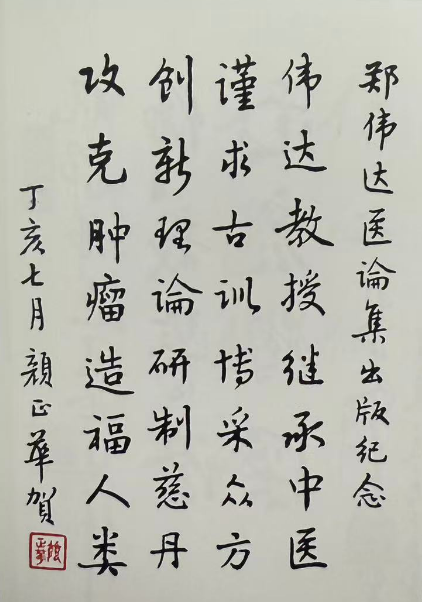 郑伟达医论集出版纪念
伟达教授继承中医
谨求古训博采众方
创新理论研制慈丹
攻克肿瘤造福人类
丁亥七月颜正華贺